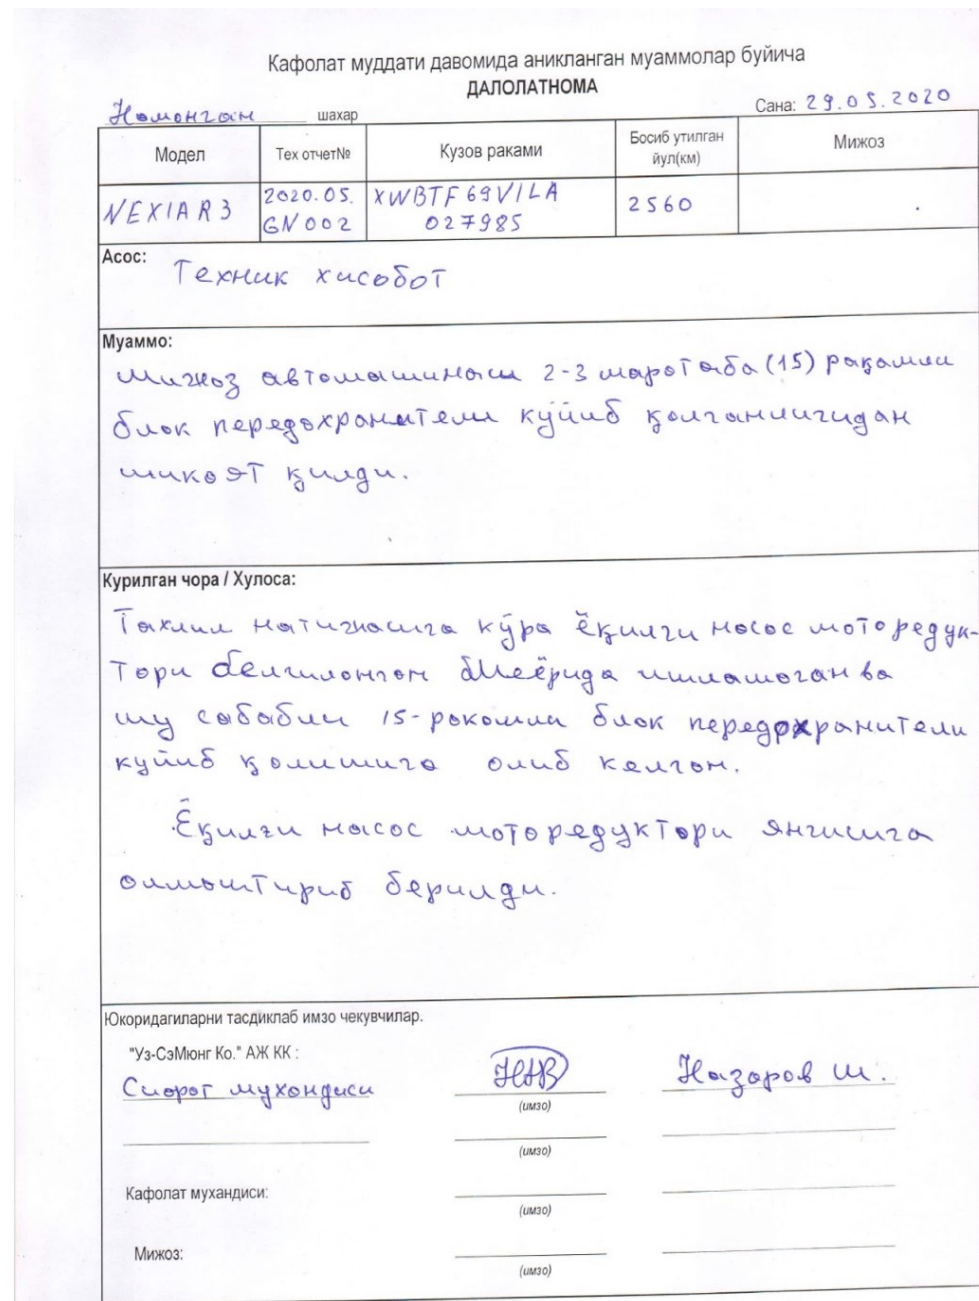 Кафолат муддати давомида аникланган муаммолар буйича
ДАЛОЛАТНОМА
Наманган шахар
Сана: 29.05.2020
Модел
Тех отчет№
Кузов раками
Босиб утилган йул(км)
Мижоз
NEXIA R3
2020.05. GN002
XWBTF69VILA 027985
2560
Асос:
Техник хисобот
Муаммо:
Мижоз автомашинаси 2-3 маротаба (15) рақамли
блок передохранители куйиб қолганлигидан
шикоят қилди.
Курилган чора / Хулоса:
Тахлил натижасига кўра ёқилғи насос моторедук-
тори белгиланган меёрида ишламаган ва
шу сабабли 15-рақамли блок передохранители
куйиб қолишига олиб келган.
Ёқилғи насос моторедуктори янгисига
олмоштириб берилди.
Юкоридагиларни тасдиклаб имзо чекувчилар.
"Уз-СэМюнг Ко." АЖ КК :
Сифат мухандиси
Назаров Ш.
(имзо)
(имзо)
Кафолат мухандиси:
(имзо)
Мижоз:
(имзо)